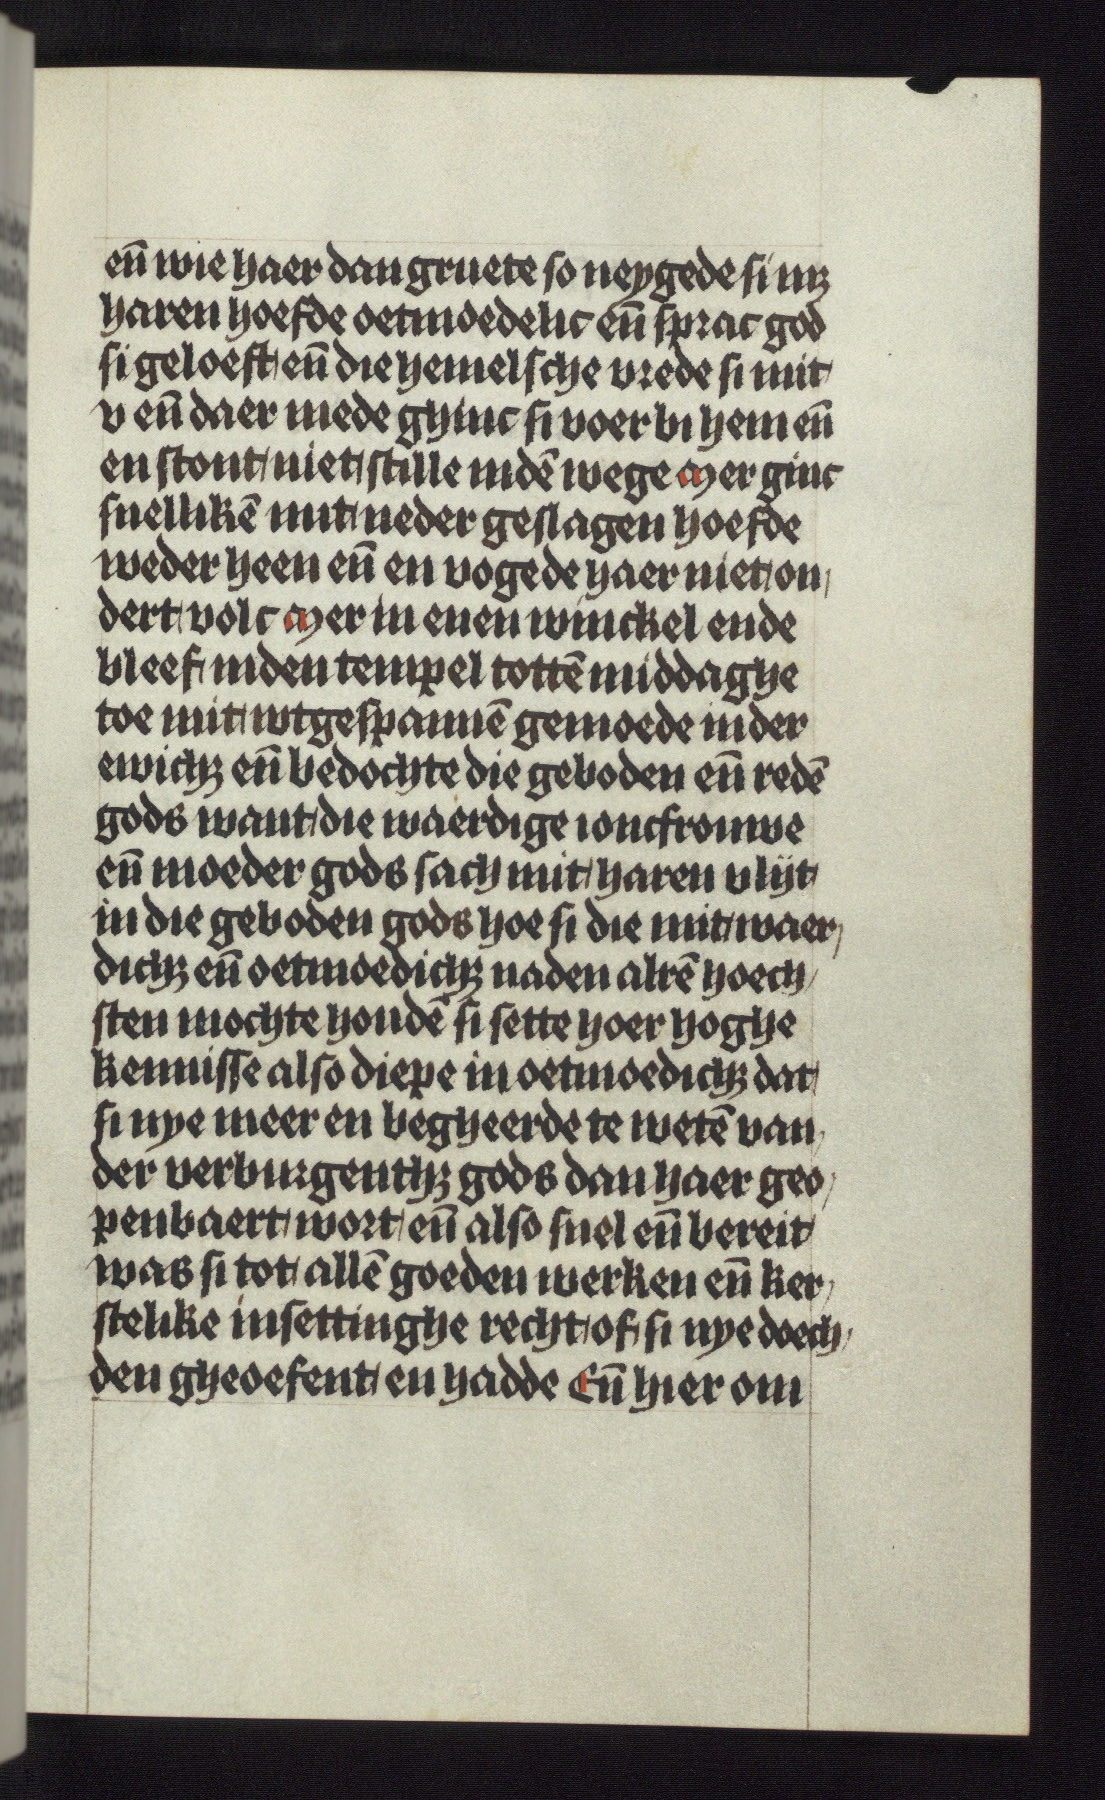 eñ wie haer dan gruete so neygede si mꝫ
haren hoefde oetmoedelic eñ sprac god
si geloeft eñ die hemelsche vrede si mit
v eñ daer mede ghinc si voer bi hem eñ
en stont niet stille indē wege Mer ginc
snellikē mit neder geslagen hoefde
weder heen eñ en vogede haer niet on
dert volc Mer in enen winckel ende
bleef inden tempel tottē middaghe
toe mit wtgespannē gemoede inder
ewichꝫ eñ bedochte die geboden eñ redē
gods want die waerdige ioncfrouwe
eñ moeder gods sach mit haren vlijt
in die geboden gods hoe si die mit waer
dichꝫ eñ oetmoedichꝫ naden alrē hoech
sten mochte houdē si sette hoer hoghe
kennisse also diepe in oetmoedichꝫ dat
si nye meer en begheerde te wetē van
der verburgenthꝫ gods dan haer geo
penbaert wort eñ also snel eñ bereit
was si tot allē goeden werken eñ ker
stelike insettinghe recht of si nye doech
den gheoefent en hadde Eñ hier om